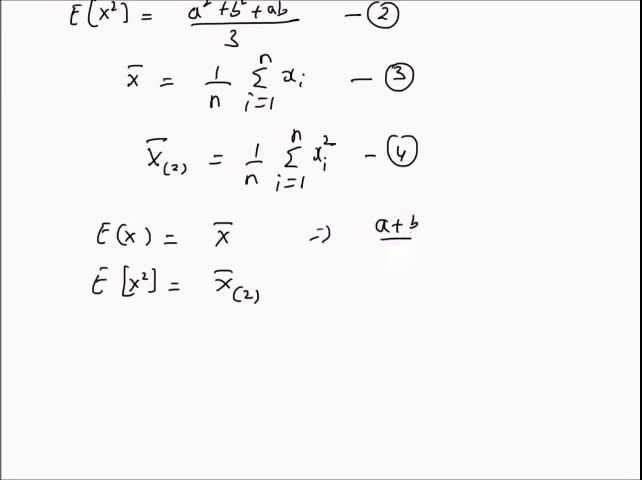 E[x²] = a² + b² + ab / 3 - ②
x̄ = 1/n Σ_{i=1}^{n} x_i - ③
x̄_(2) = 1/n Σ_{i=1}^{n} x_i² - ④
E(x) = x̄ ⇒ a+b
E[x²] = x̄_(2)